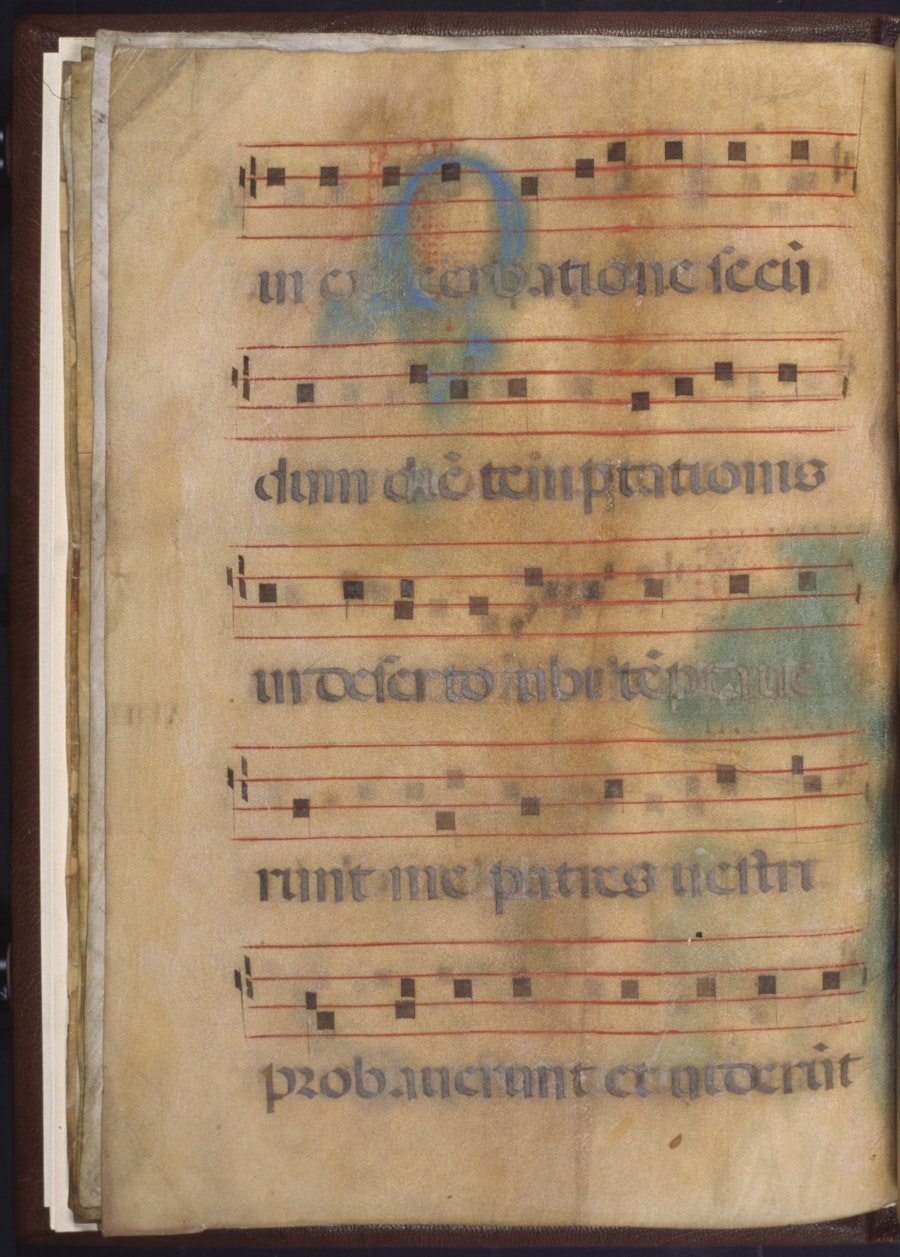 in exacerbatione secū
dum diē temptationis
in deserto in ubi tēptaue
runt me patres uestri
probauerunt et uiderūt